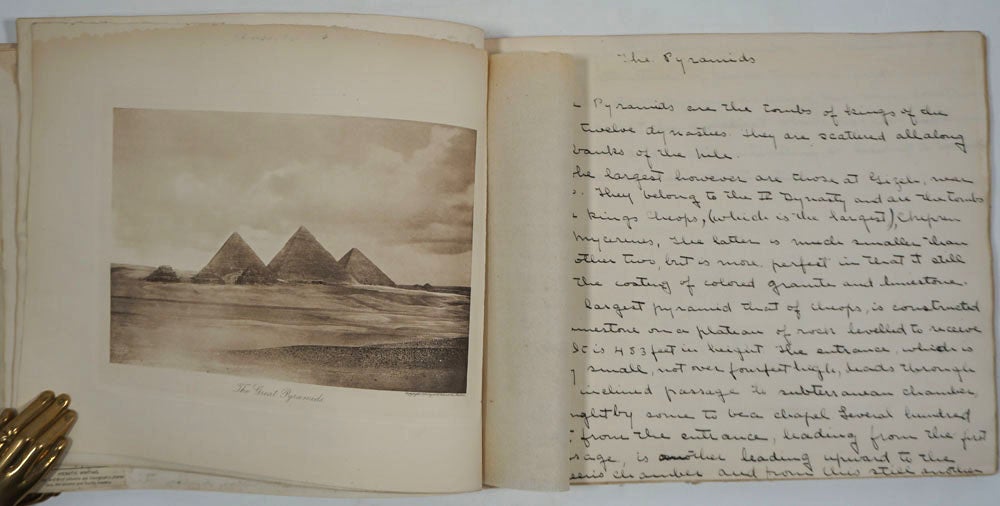 The Great Pyramids
The Pyramids
Pyramids are the tombs of kings of the
twelve dynasties. They are scattered all along
banks of the Nile.
he largest however are those at Gizeh, near
They belong to the IV Dynasty and are the tombs
kings Cheops, (which is the largest), Chefren
Mycerines, The latter is much smaller than
other two, but is more perfect in that it still
the coating of colored granite and limestone.
largest pyramid that of Cheops, is constructed
imestone on a plateau of rock levelled to receive
It is 483 feet in height The entrance, which is
small, not over four feet high, leads through
inclined passage to subterranean chamber,
ught by some to be a chapel Several hundred
from the entrance, leading from the first
sage, is another leading upward to the
chamber and from this still another